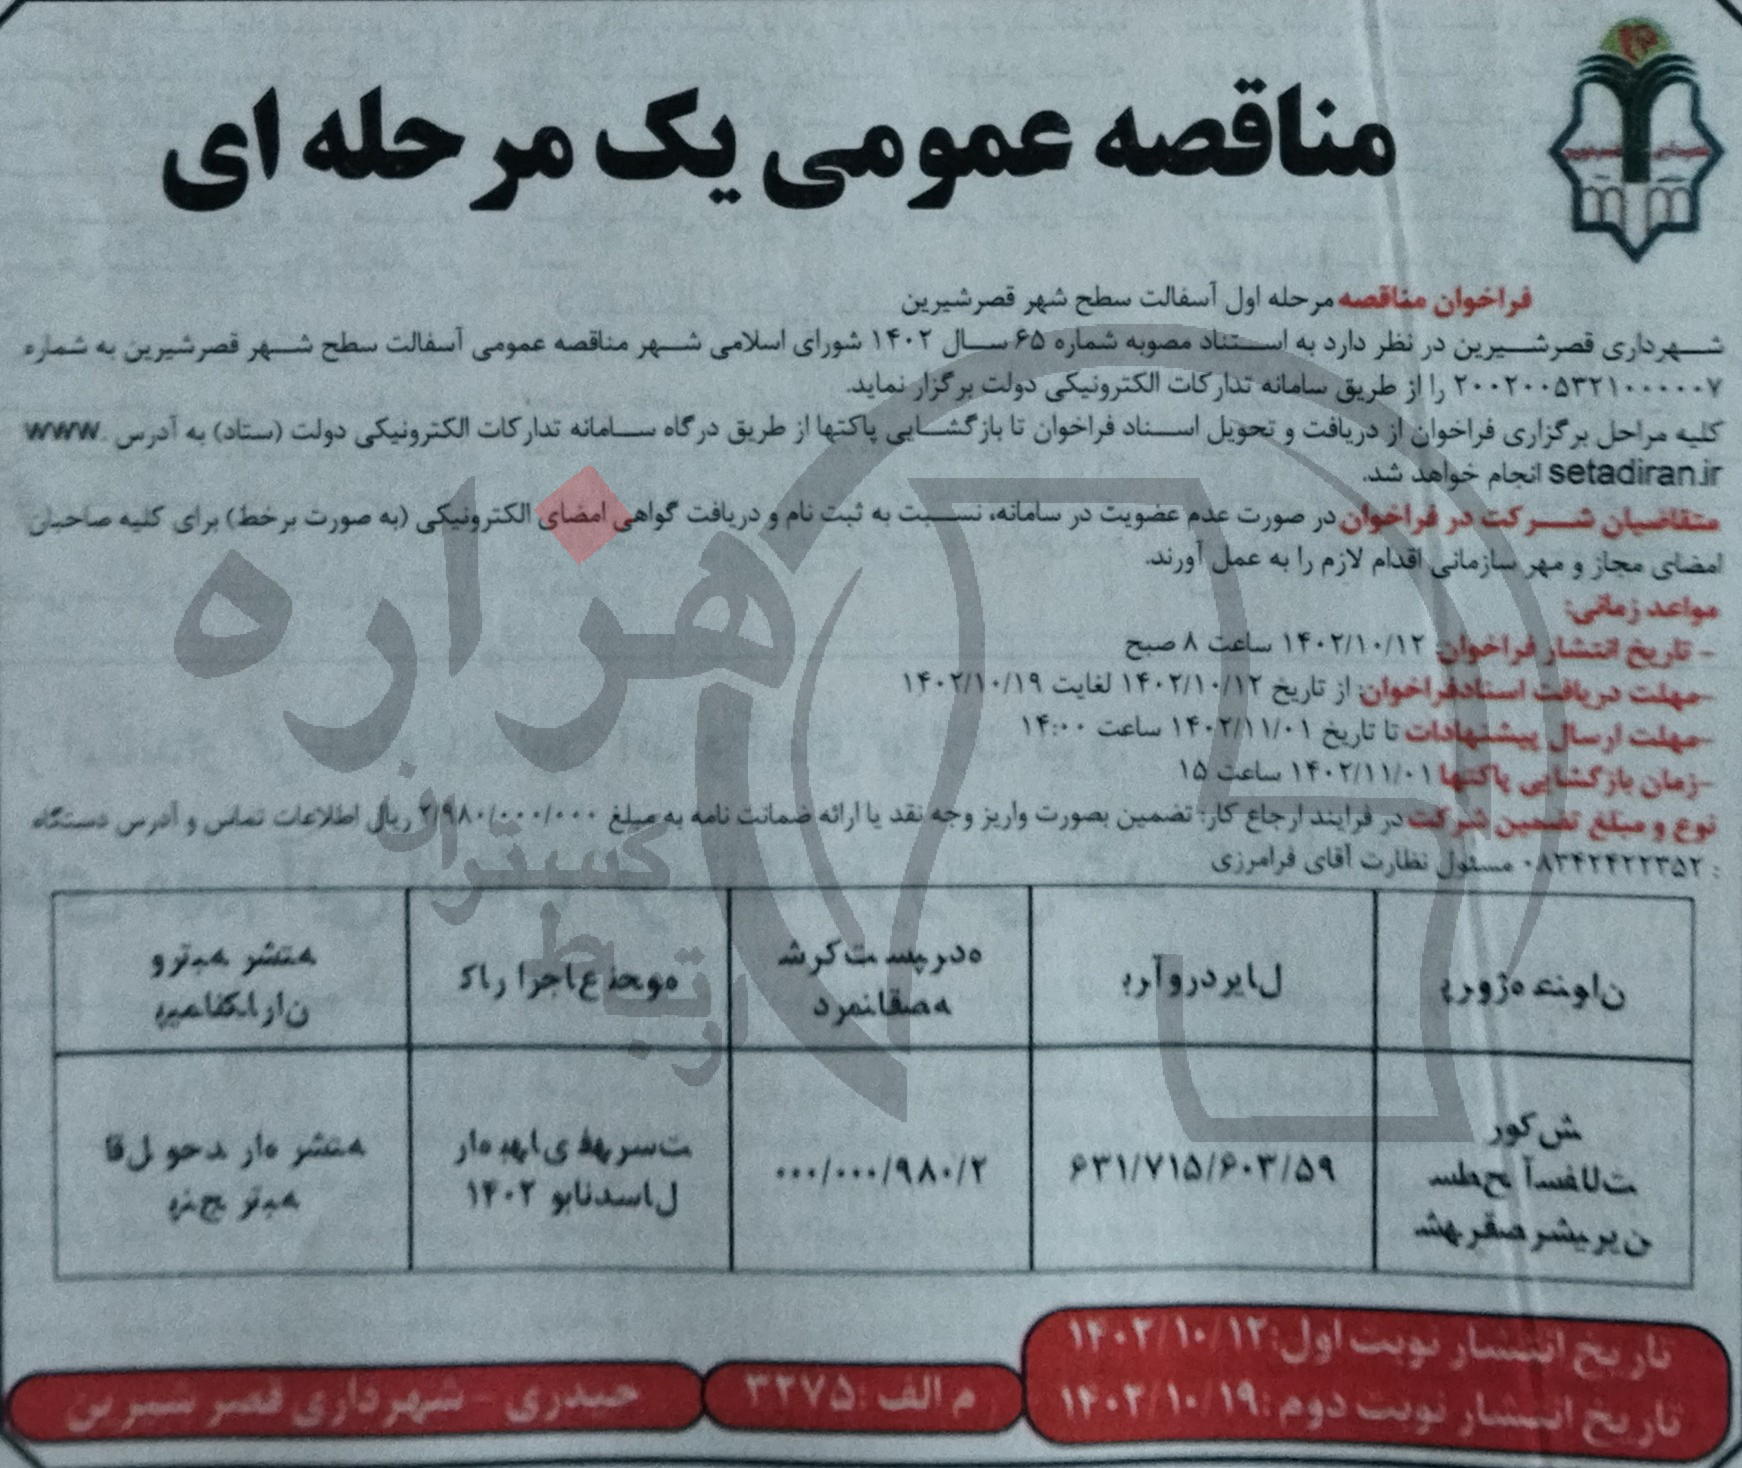 مناقصه عمومی یک مرحله ای
فراخوان مناقصه مرحله اول آسفالت سطح شهر قصرشیرین
شهرداری قصرشیرین در نظر دارد به استناد مصوبه شماره ۶۵ سال ۱۴۰۲ شورای اسلامی شهر مناقصه عمومی آسفالت سطح شهر قصرشیرین به شماره
۲۰۰۲۰۰۵۳۲۱۰۰۰۰۰۷ را از طریق سامانه تدارکات الکترونیکی دولت برگزار نماید.
کلیه مراحل برگزاری فراخوان از دریافت و تحویل اسناد فراخوان تا بازگشایی پاکتها از طریق درگاه سامانه تدارکات الکترونیکی دولت (ستاد) به آدرس www.
setadiran.ir انجام خواهد شد.
متقاضیان شرکت در فراخوان در صورت عدم عضویت در سامانه، نسبت به ثبت نام و دریافت گواهی امضای الکترونیکی (به صورت برخط) برای کلیه صاحبان
امضای مجاز و مهر سازمانی اقدام لازم را به عمل آورند.
مواعد زمانی:
- تاریخ انتشار فراخوان: ۱۴۰۲/۱۰/۱۲ ساعت ۸ صبح
-مهلت دریافت اسنادفراخوان: از تاریخ ۱۴۰۲/۱۰/۱۲ لغایت ۱۴۰۲/۱۰/۱۹
-مهلت ارسال پیشنهادات تا تاریخ ۱۴۰۲/۱۱/۰۱ ساعت ۱۴:۰۰
-زمان بازگشایی پاکتها ۱۴۰۲/۱۱/۰۱ ساعت ۱۵
نوع و مبلغ تضمین شرکت در فرایند ارجاع کار: تضمین بصورت واریز وجه نقد یا ارائه ضمانت نامه به مبلغ ۲/۹۸۰/۰۰۰/۰۰۰ ریال اطلاعات تماس و آدرس دستگاه
: ۰۸۳۴۲۴۲۲۳۵۲ مسئول نظارت آقای فرامرزی
ناونعه ژورپ
لایردروآرب
هدرپستکرش
هصقانمرد
هوحن عاجرا راک
ش کور
تلافسآ حطس
نیریشرصقرهش
۶۳۱/۷۱۵/۶۰۳/۵۹
۰۰۰/۰۰۰/۹۸۰/۲
لاسدنابو ۱۴۰۲
تاریخ انتشار نوبت اول: ۱۴۰۲/۱۰/۱۲
تاریخ انتشار نوبت دوم: ۱۴۰۲/۱۰/۱۹
م الف: ۳۲۷۵
حیدری - شهرداری قصر شیرین
هزاره
گستران
ارتباط